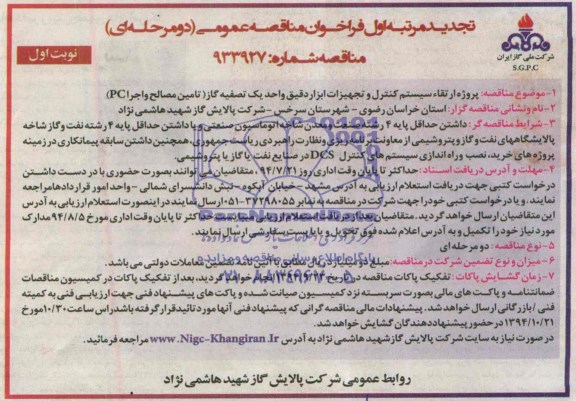 تجدید مرتبه اول فراخوان مناقصه عمومی (دو مرحله ای)
مناقصه شماره: ۹۳۳۹۲۷
نوبت اول
شرکت ملی گاز ایران
S.G.P.C
۱- موضوع مناقصه: پروژه ارتقاء سیستم کنترل و تجهیزات ابزار دقیق واحد یک تصفیه گاز (تامین مصالح و اجرا PC)
۲- نام ونشانی مناقصه گزار: استان خراسان رضوی - شهرستان سرخس - شرکت پالایش گاز شهید هاشمی نژاد
۳- شرایط مناقصه گر: داشتن حداقل پایه ۴ رشته معدن شاخه اتوماسیون صنعتی و یا داشتن حداقل پایه ۴ رشته نفت و گاز شاخه
پالایشگاههای نفت و گاز و پتروشیمی از معاونت برنامه ریزی ونظارت راهبردی ریاست جمهوری، همچنین داشتن سابقه پیمانکاری در زمینه
پروژه های خرید، نصب و راه اندازی سیستم های کنترل DCS در صنایع نفت یا گاز یا پتروشیمی.
۴- مهلت و آدرس دریافت اسناد: حداکثر تا پایان وقت اداری روز ۹۴/۷/۲۱، متقاضیان می توانند بصورت حضوری با در دست داشتن
درخواست کتبی جهت دریافت استعلام ارزیابی به آدرس مشهد - خیابان آبکوه - نبش دانشسرای شمالی - واحد امور قراردادها مراجعه
نمایند، و یا درخواست کتبی خود را جهت شرکت در مناقصه به نمابر ۳۷۲۹۸۰۵۵-۰۵۱ ارسال نمایند در اینصورت استعلام ارزیابی به آدرس
این متقاضیان ارسال خواهد گردید. متقاضیان بعد از دریافت استعلام ارزیابی حداکثر تا پایان وقت اداری مورخ ۹۴/۸/۵ مدارک
مورد نیاز خود را تکمیل و به آدرس اعلام شده فوق تحویل و یا پست سفارشی ارسال نمایند.
۵- نوع مناقصه: دو مرحله ای
۶- میزان و نوع تضمین شرکت در مناقصه: مبلغ دو میلیارد ریال مطابق با آیین نامه تضمین معاملات دولتی می باشد.
۷- زمان گشایش پاکات: تفکیک پاکات مناقصه در تاریخ انجام خواهد گردید، بعد از تفکیک پاکات در کمیسیون مناقصات
ضمانتنامه و پاکت های مالی بصورت سربسته نزد کمیسیون صیانت شده و پاکت های پیشنهاد فنی جهت ارزیابی فنی به کمیته
فنی / بازرگانی ارسال خواهد شد. پیشنهادات مالی مناقصه گرانی که پیشنهاد فنی آنها مورد تائید قرار گرفته باشد راس ساعت ۱۰/۳۰ مورخ
۱۳۹۴/۱۰/۲۱ در حضور پیشنهاد دهندگان گشایش خواهد شد.
در صورت نیاز به سایت شرکت پالایش گاز شهید هاشمی نژاد به آدرس www.Nigc-Khangiran.Ir مراجعه فرمائید.
روابط عمومی شرکت پالایش گاز شهید هاشمی نژاد